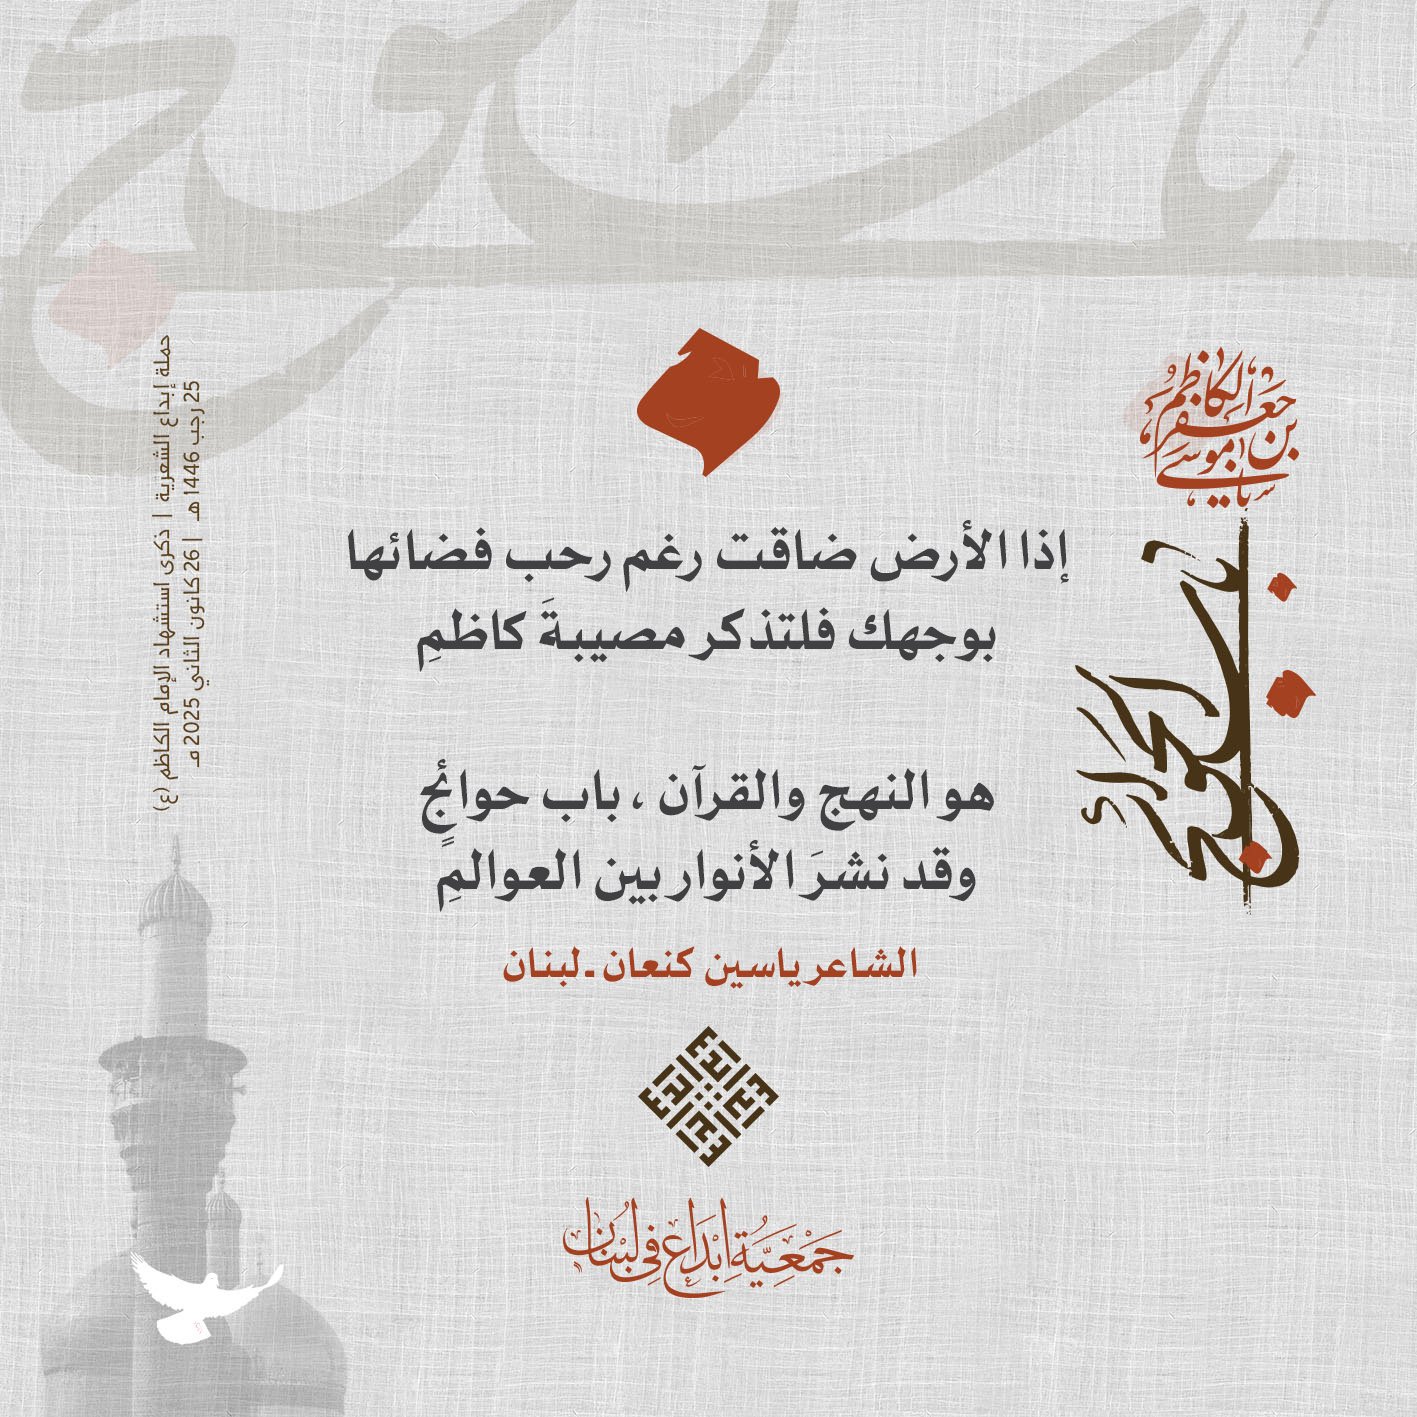 يا موسى
بن جعفر
الكاظم
باب الحوائج
إذا الأرض ضاقت رغم رحب فضائها
بوجهك فلتذكر مصيبةَ كاظمِ
هو النهج والقرآن ، باب حوائجٍ
وقد نشرَ الأنوار بين العوالمِ
الشاعر ياسين كنعان - لبنان
جَمْعِيَّةُ إِبْدَاع فِي لُبْنان
حملة إبداع الشعرية | ذكرى استشهاد الإمام الكاظم (ع)
25 رجب 1446 هـ | 26 كانون الثاني 2025 مـ